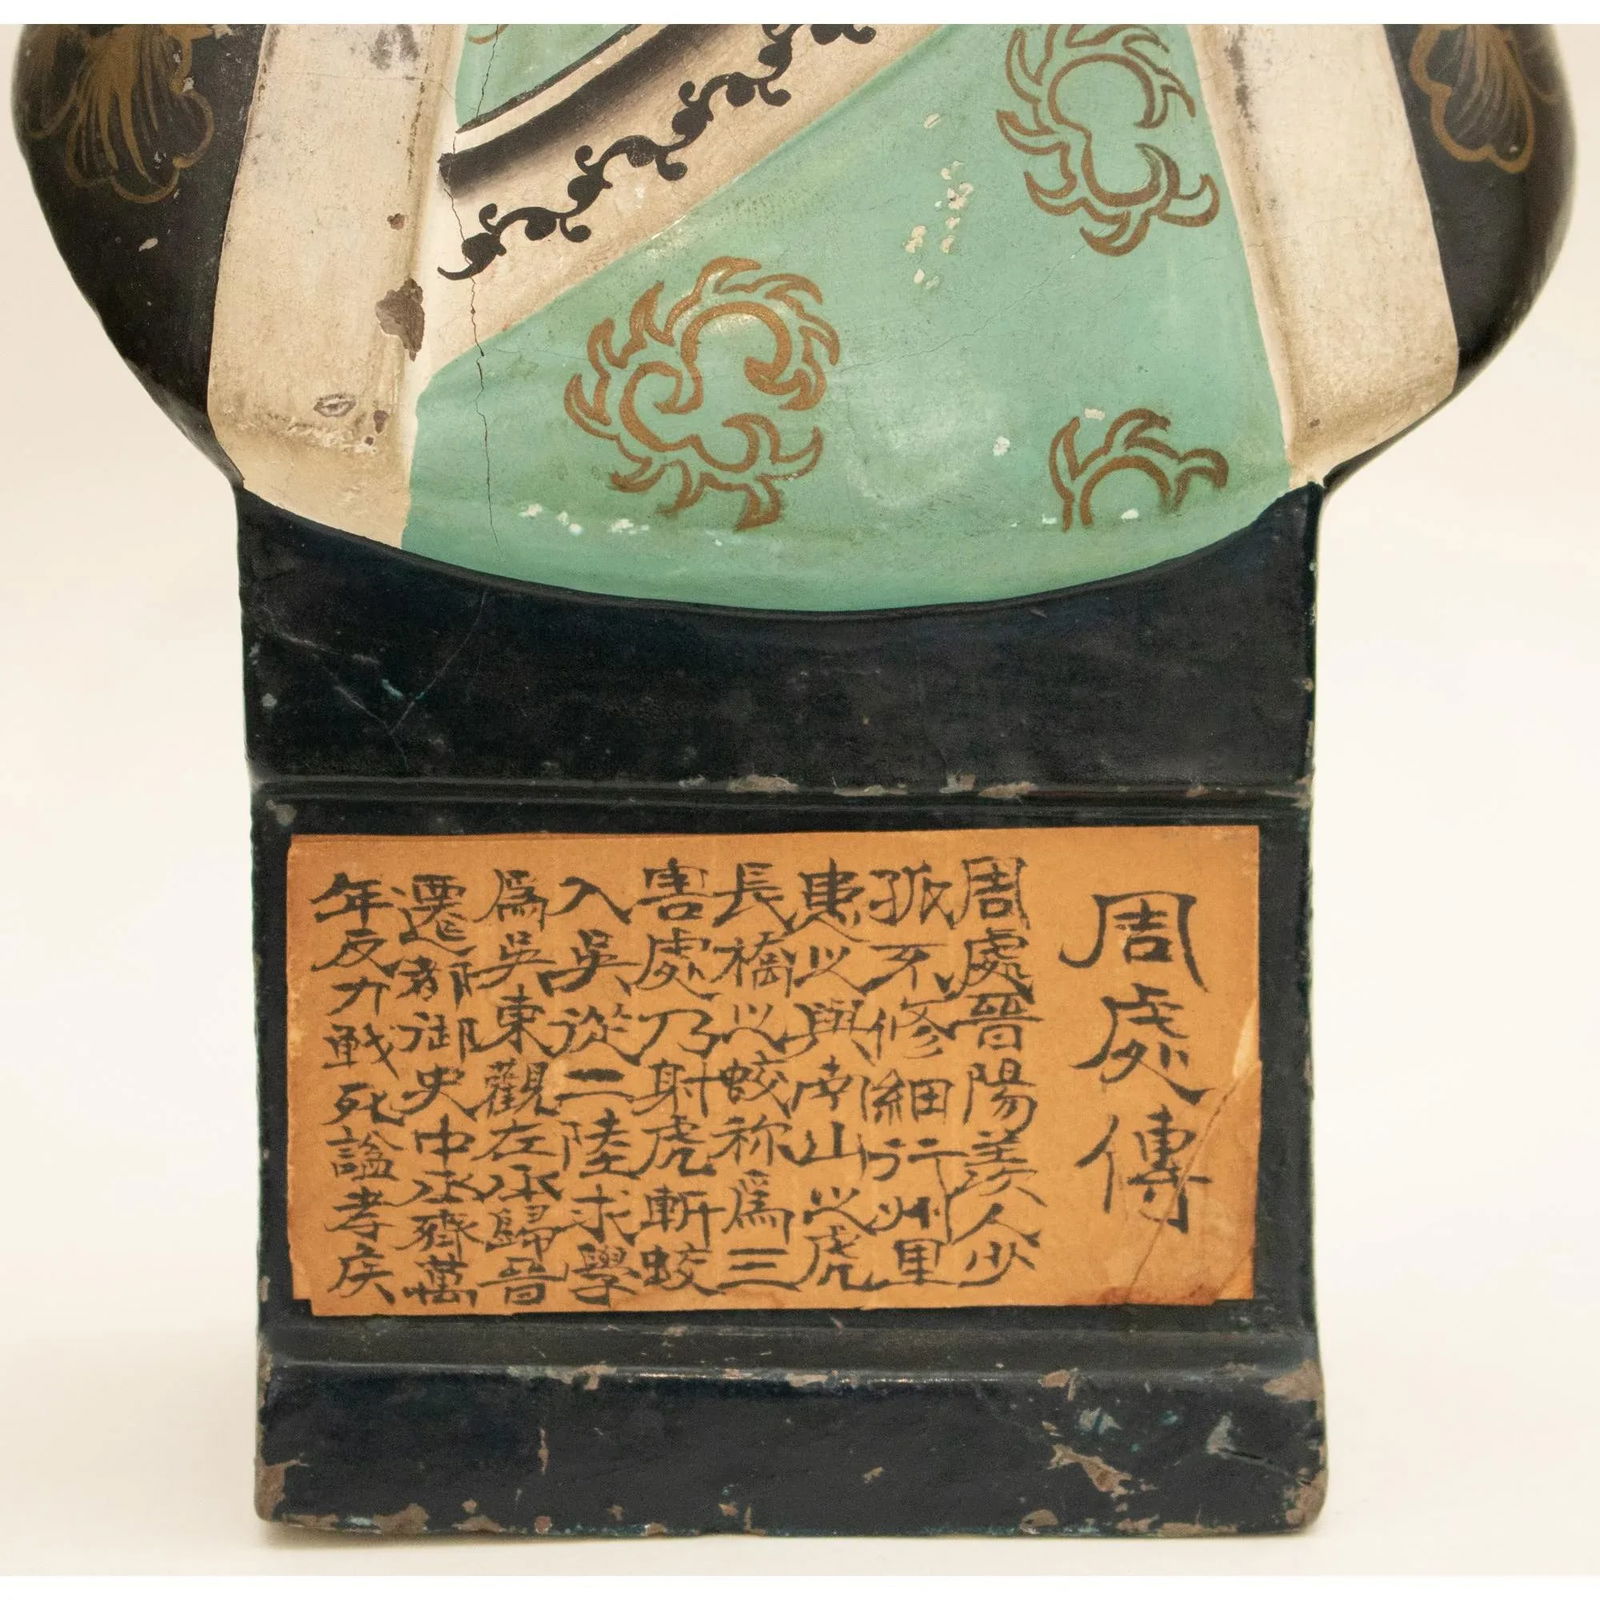 周處傳
周處晉陽羨人少
孤不修細行州里
患之與南山之虎
長橋之蛟称爲三
害處乃射虎斬蛟
入吳從二陸求學
爲吳東觀左丞歸晉
遷都御史中丞齊萬
年反力戰死謚孝侯